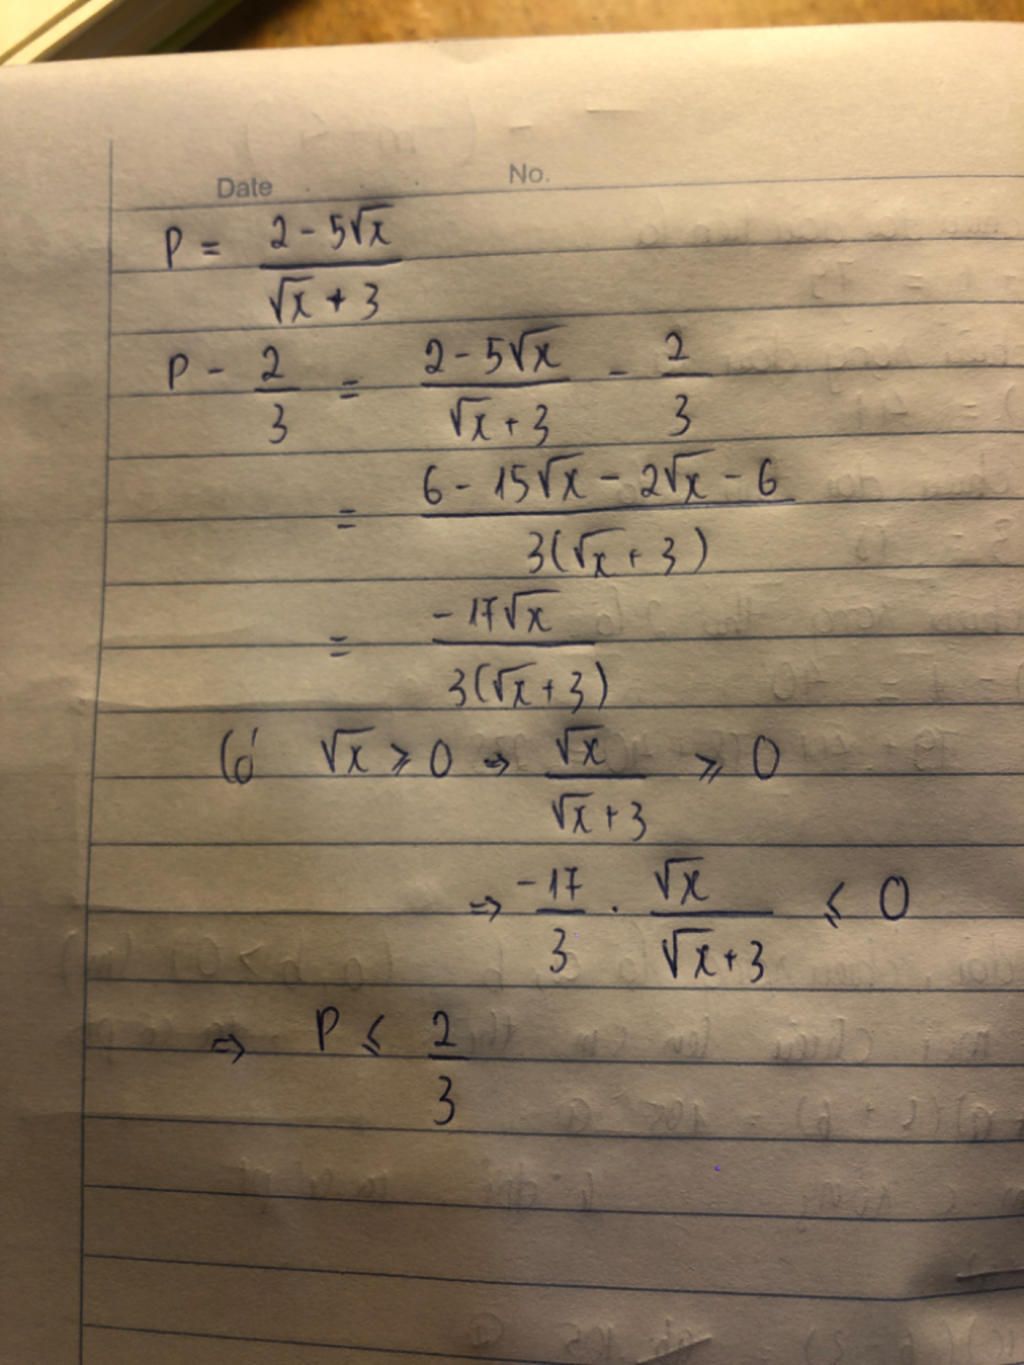 Date No.
P = (2 - 5√x)/(√x + 3)
P - 2/3 = (2 - 5√x)/(√x + 3) - 2/3
= (6 - 15√x - 2√x - 6)/(3(√x + 3))
= (-17√x)/(3(√x + 3))
Có √x ⩾ 0 → √x/(√x + 3) ⩾ 0
⇒ -17/3 . √x/(√x + 3) ⩽ 0
⇒ P ⩽ 2/3